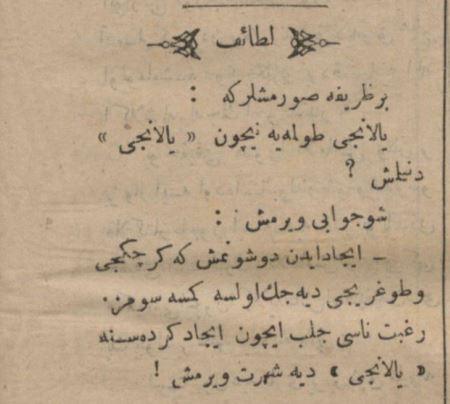 لطائف
بر ظریفه صورمشلركه :
یالانجی طولمه‌یه نیچون « یالانجی »
دنیلمش ؟
شو جوابی ویرمش :
ـ ایجاد ایدن دوشونمش كه كرچكجی
وطوغریجی دیه جك اولسه كیمسه سومز.
رغبت ناسی جلب ایچون ایجاد كرده‌سنه
« یالانجی » دیه شهرت ویرمش !